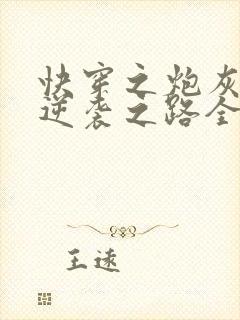 快穿之炮灰
逆袭之路全
王远